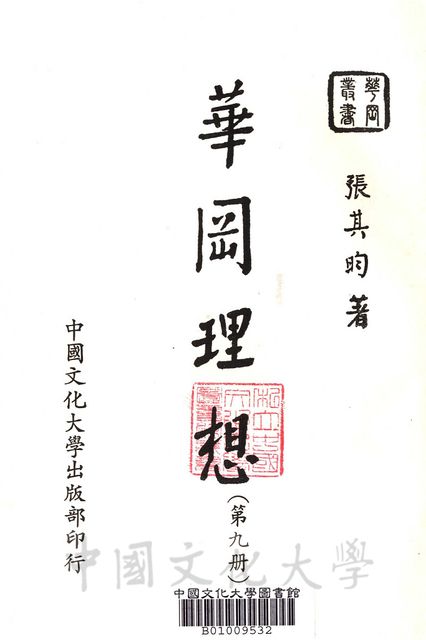 華岡
叢書
張其昀著
華岡理想
(第九册)
中國文化大學出版部印行
中國文化大學
中國文化大學圖書館
B01009532